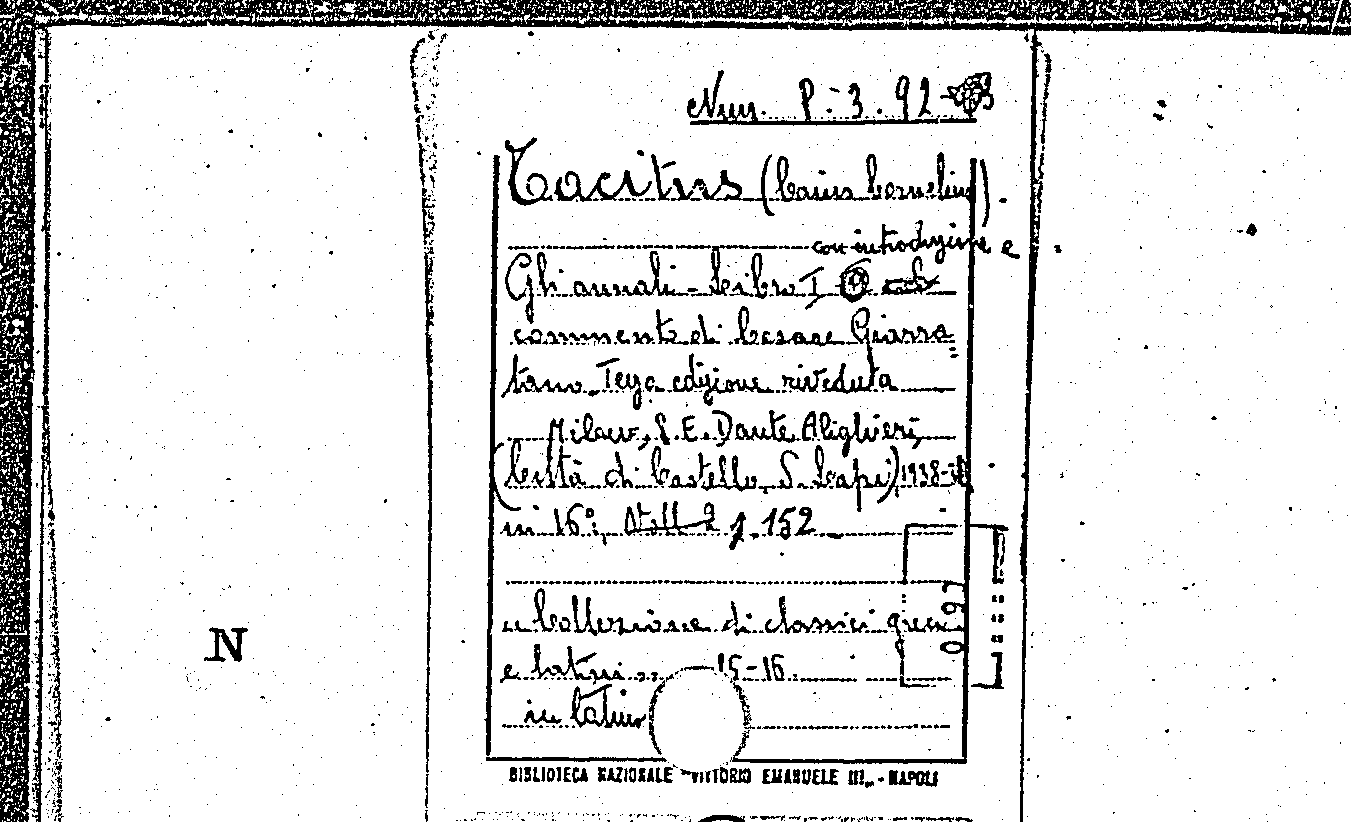 Num. P. 3. 92
Tacitus (Caius Cornelius).
con introduzione e
Gli annali - Libro I
commento di Cesare Giarra=
tano. Terza edizione riveduta
Milano, S. E. Dante Alighieri,
(Città di Castello, S. Lapi), 1938
in 16°, p. 152
« Collezione di classici greci
e latini » 15-16.
in latino
N
BIBLIOTECA NAZIONALE "VITTORIO EMANUELE III„ - NAPOLI